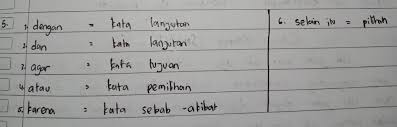 5. 1. dengan = kata lanjutan
2. dan = kata lanjutan
3. agar = kata tujuan
4. atau = kata pemilihan
5. karena = kata sebab-akibat
6. selain itu = pilihan